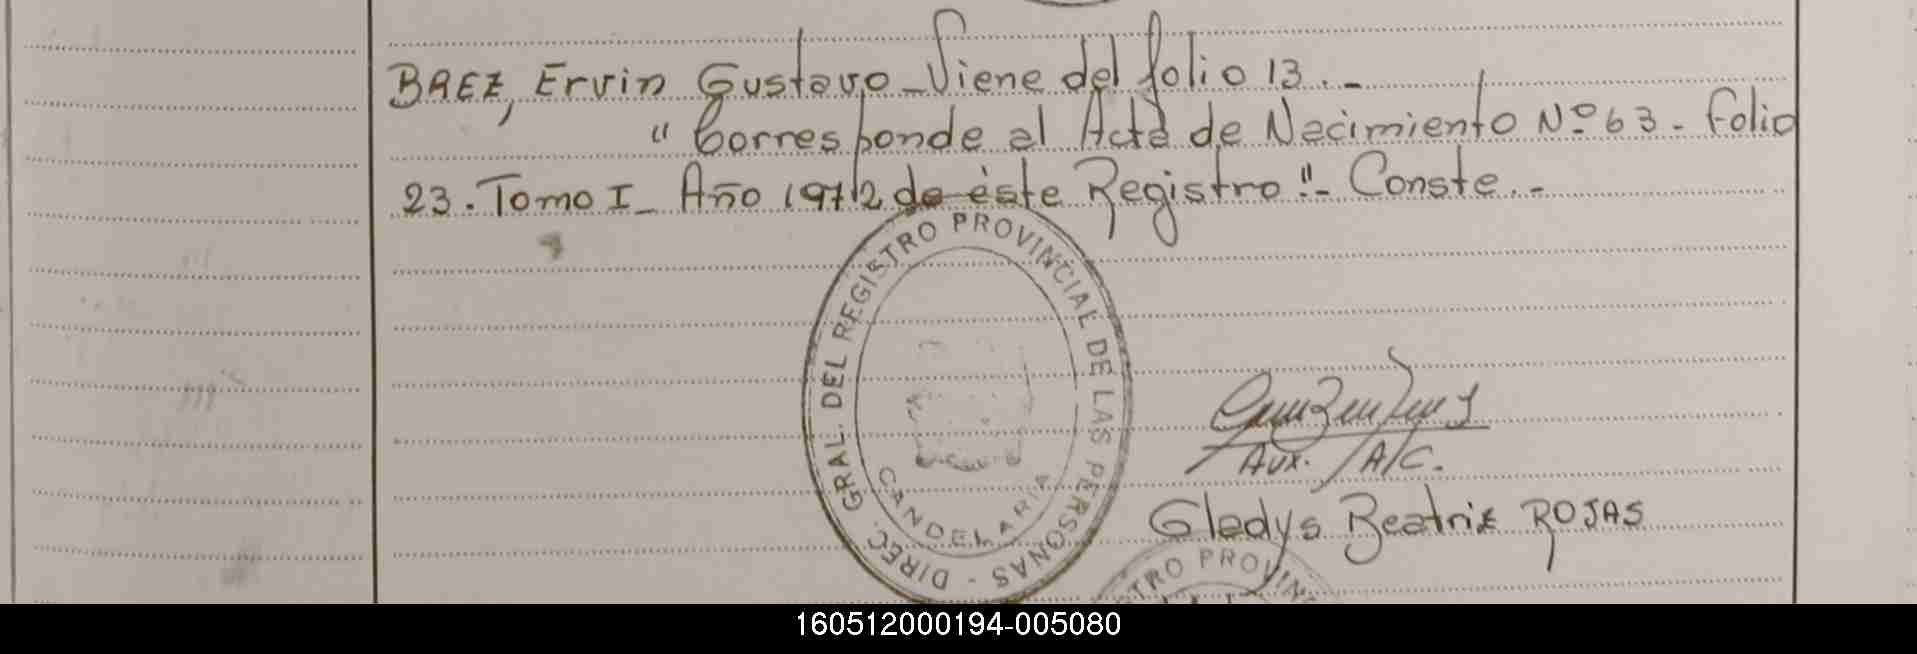 BAEZ, Ervin Gustavo - Viene del folio 13. -
" Corresponde al Acta de Nacimiento Nº 63 - Folio
23. Tomo I - Año 1972 de éste Registro "- Conste. -
DIREC. GRAL. DEL REGISTRO PROVINCIAL DE LAS PERSONAS -
CANDELARIA
Aux. A/C.
Gladys Beatriz ROJAS
TRO PROVIN
160512000194-005080